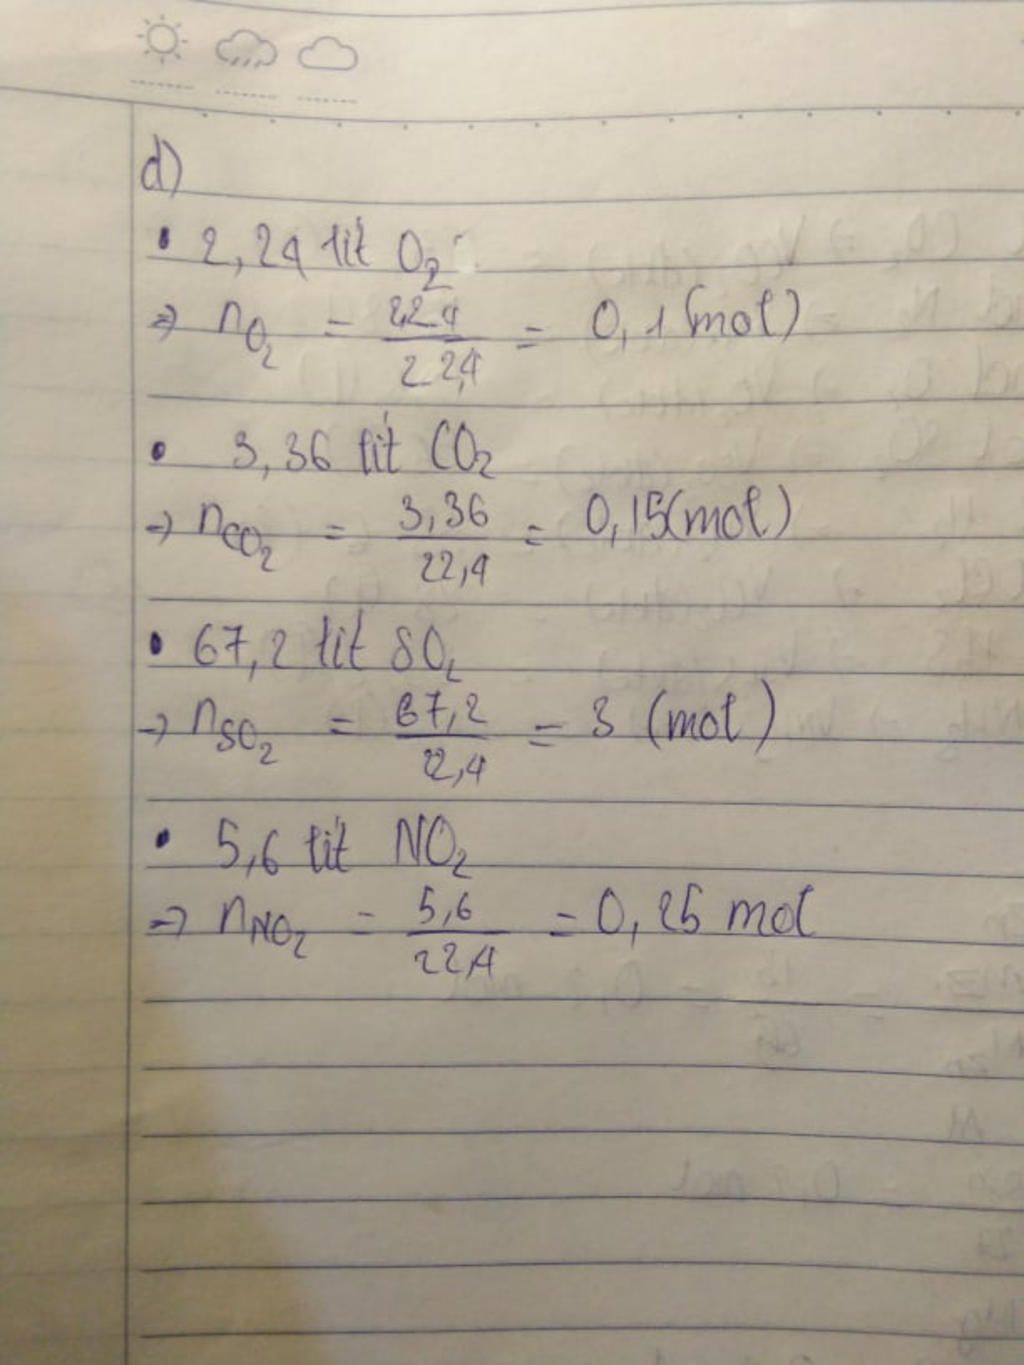 d)
• 2,24 lít O₂
⇒ nO₂ = 2,24 / 22,4 = 0,1 (mol)
• 3,36 lít CO₂
→ nCO₂ = 3,36 / 22,4 = 0,15(mol)
• 67,2 lít SO₂
→ nSO₂ = 67,2 / 22,4 = 3 (mol)
• 5,6 lít NO₂
⇒ nNO₂ = 5,6 / 22,4 = 0,25 mol